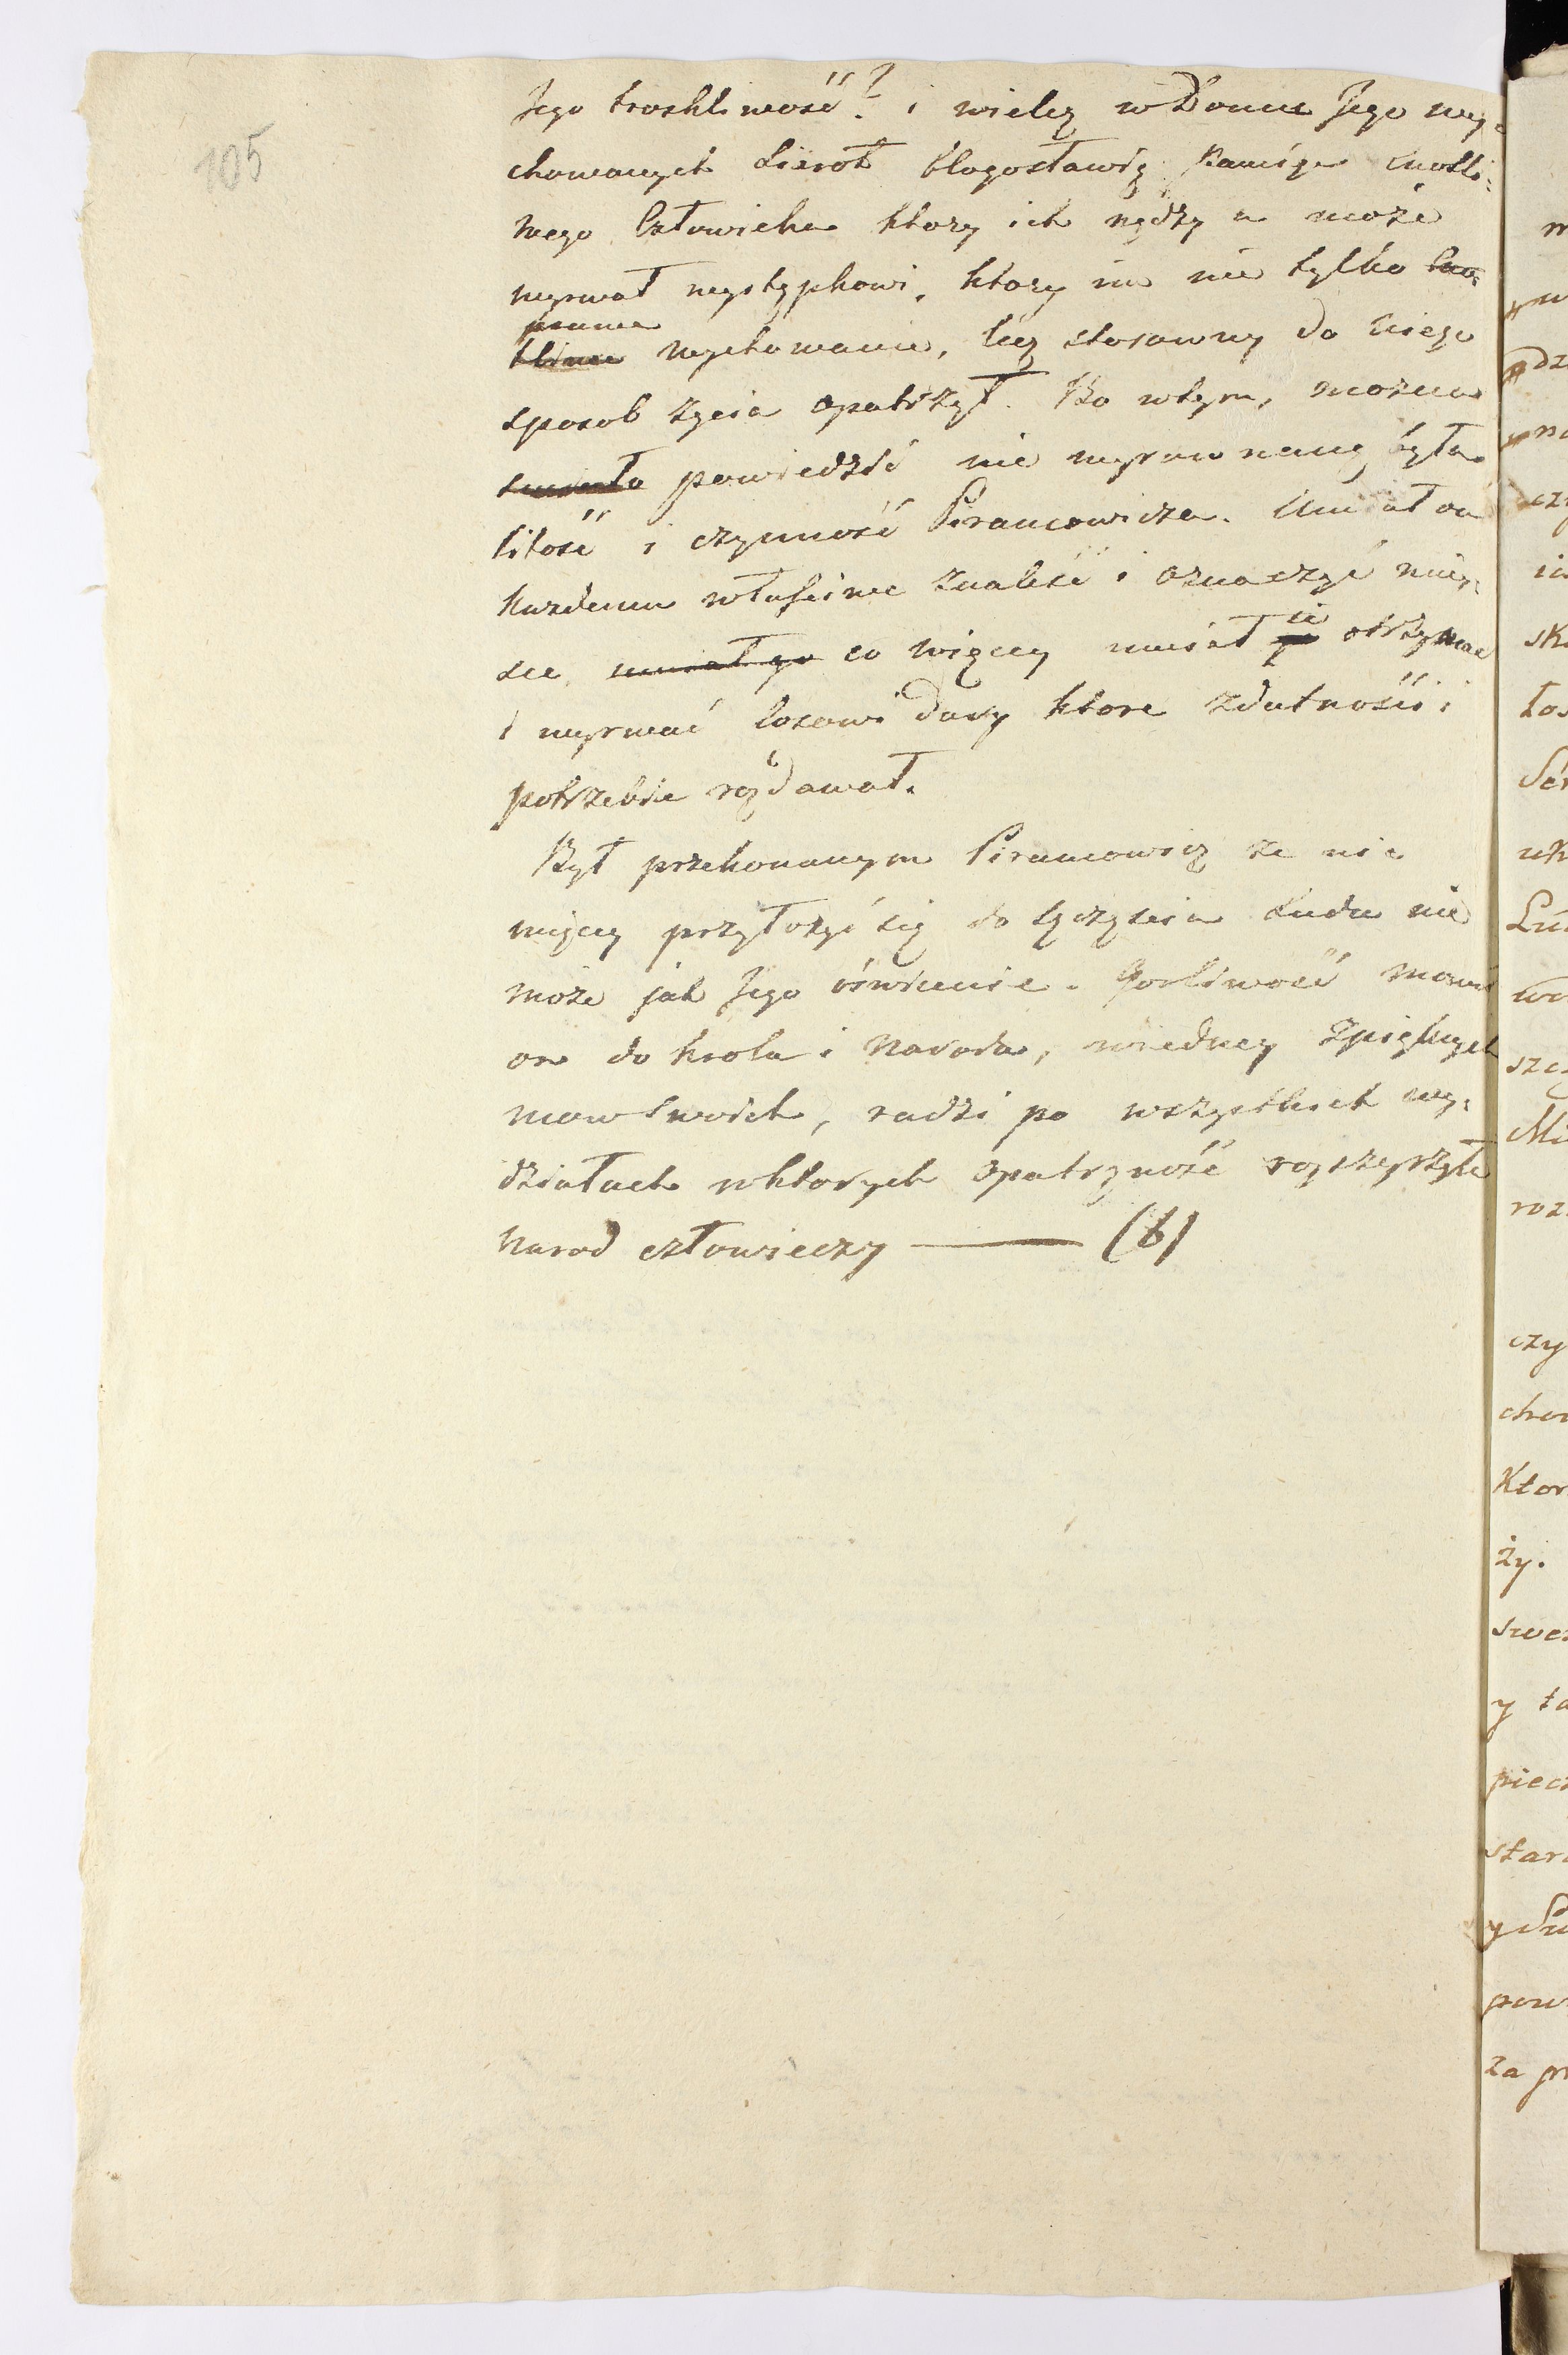 105
Jego troskliwość? i wielą w Domu Jego wy=
chowanych Sierot błogosławią Pamięć Cnotli=
wego Człowieka ktory ich nędzy a może
wyrwał występkowi, ktory im nie tylko
prawe
wychowanie, lecz stosowny do niego
sposob życia opatrzył. Bo wtym, można
smiało powiedzić nie wyrownaną była
litość i czynność Piramowicza. Umiał on
każdemu właściwe znaleść i oznaczyć miey=
sce, umiał go co więcey umiał ie otrzymać
i wyrwać losowi dary ktore zdatności i
potrzebie rozdawał.
Był przekonanym Piramowicz że nic
więcey przyłożyć się do szczęścia Ludu nie
może jak Jego oświecenie. Gorliwość mowi
on do krola i Narodu, wiedney zpięknych
mow swoich, radzi po wszystkich wy=
działach wktorych Opatrzność rozszerzyła
Narod człowieczy ——— (b)
czy
Ktor
ży.
y ta
piecz
star
za pr